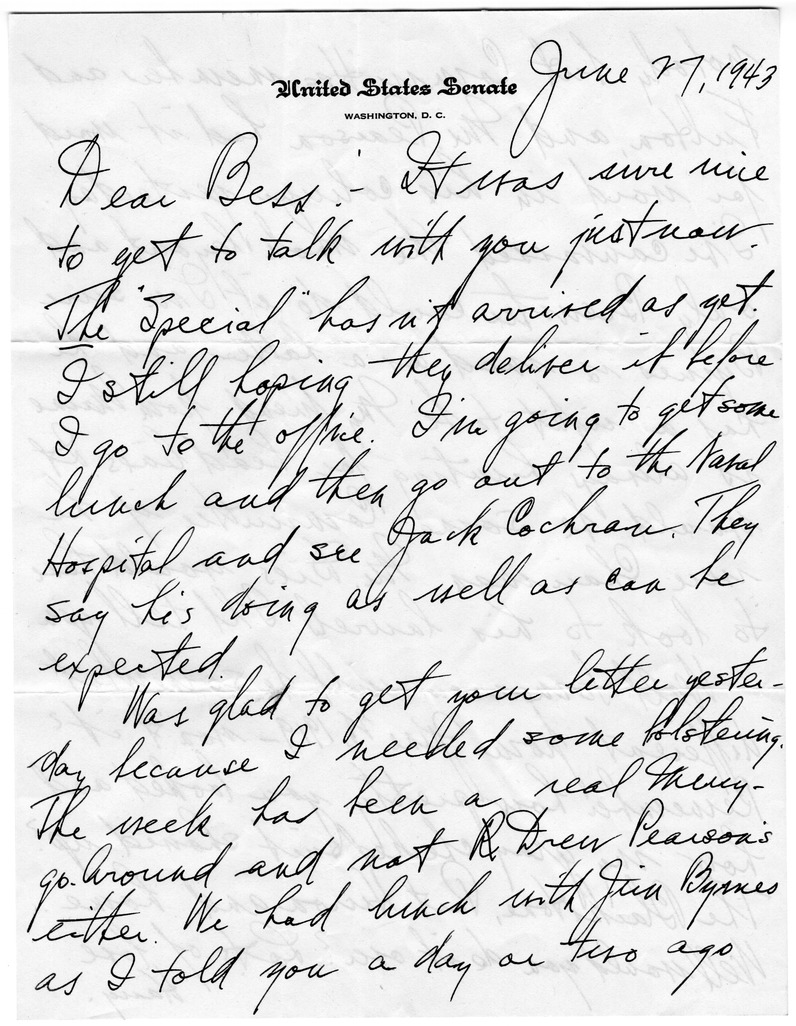 United States Senate
WASHINGTON, D. C.
June 27, 1943
Dear Bess:- It was sure nice
to get to talk with you just now.
The "Special" hasn't arrived as yet.
I still hoping they deliver it before
I go to the office. I'm going to get some
lunch and then go out to the Naval
Hospital and see Jack Cochran. They
say he's doing as well as can be
expected.
Was glad to get your letter yester-
day because I needed some bolstering.
The week has been a real Merry-
go-Around and not R Drew Pearson's
either. We had lunch with Jim Byrnes
as I told you a day or two ago